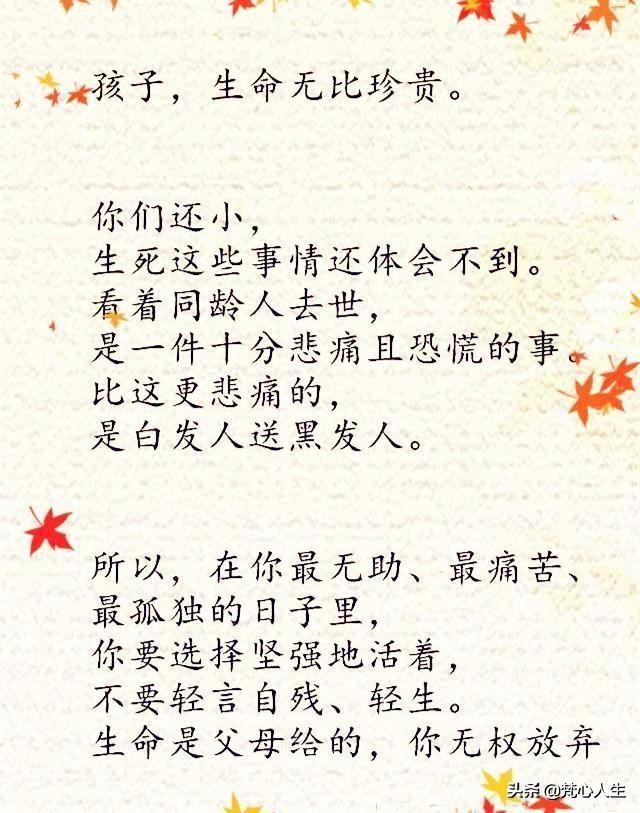 孩子，生命无比珍贵。
你们还小，
生死这些事情还体会不到。
看着同龄人去世，
是一件十分悲痛且恐慌的事。
比这更悲痛的，
是白发人送黑发人。
所以，在你最无助、最痛苦、
最孤独的日子里，
你要选择坚强地活着，
不要轻言自残、轻生。
生命是父母给的，你无权放弃
头条 @梵心人生